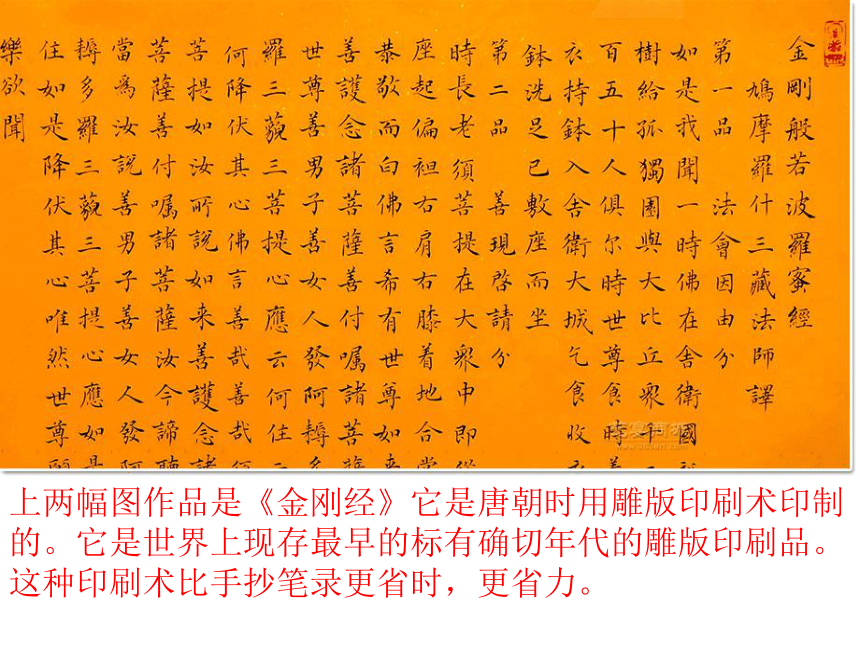 金剛般若波羅蜜經
鳩摩羅什三藏法師譯
第一品 法會因由分
如是我聞一時佛在舍衛國
樹給孤獨園與大比丘眾千二
百五十人俱尔時世尊食時
衣持鉢入舍衛大城乞食收
鉢洗足已敷座而坐
第二品 善現啓請分
時長老須菩提在大眾中即從
座起偏袒右肩右膝着地合掌
恭敬而白佛言希有世尊如來
善護念諸菩薩善付嘱諸菩薩
世尊善男子善女人發阿耨多
羅三藐三菩提心應云何住
何降伏其心佛言善哉善哉
菩提如汝所說如来善護念諸
菩薩善付嘱諸菩薩汝今諦聽
當為汝說善男子善女人發阿
耨多羅三藐三菩提心應如是
住如是降伏其心唯然世尊願
樂欲聞
上两幅图作品是《金刚经》它是唐朝时用雕版印刷术印制
的。它是世界上现存最早的标有确切年代的雕版印刷品。
这种印刷术比手抄笔录更省时，更省力。